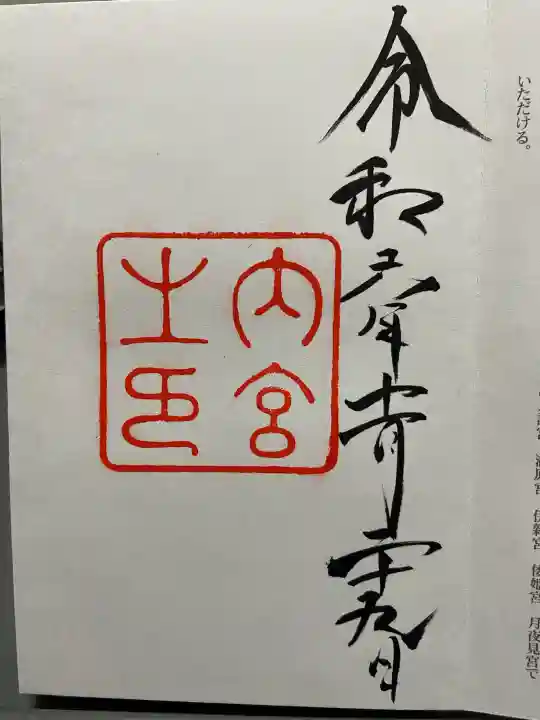 瀧原宮　伊雜宮　倭姫宮　月夜見宮で
いただける。
令和五年十一月二十九日
内宮
之印